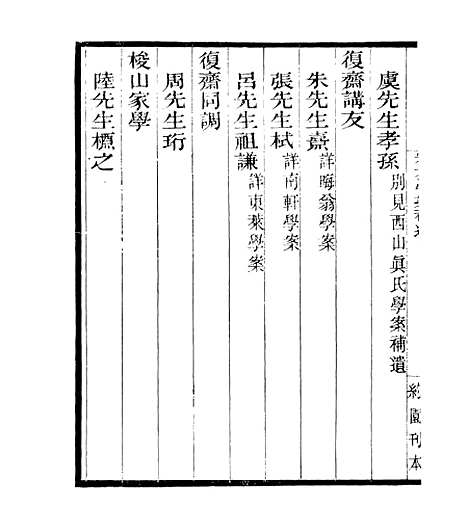 虞先生孝孫別見西山眞氏學案補遺
復齋講友
朱先生熹詳晦翁學案
張先生栻詳南軒學案
呂先生祖謙詳東萊學案
復齋同調
周先生珩
梭山家學
陸先生槱之
約園刊本